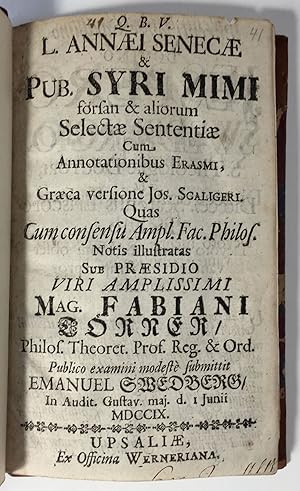 41
Q. B. V.
41
L. ANNÆI SENECÆ
&
PUB. SYRI MIMI
forsan & aliorum
Selectæ Sententiæ
Cum
Annotationibus ERASMI,
&
Græca versione JOS. SCALIGERI.
Quas
Cum consensu Ampl. Fac. Philos.
Notis illustratas
SUB PRÆSIDIO
VIRI AMPLISSIMI
MAG. FABIANI
TÖRNER/
Philos. Theoret. Prof. Reg. & Ord.
Publico examini modestè submittit
EMANUEL SWEDBERG/
In Audit. Gustav. maj. d. 1 Junii
MDCCIX.
UPSALIÆ,
Ex Officina WERNERIANA.